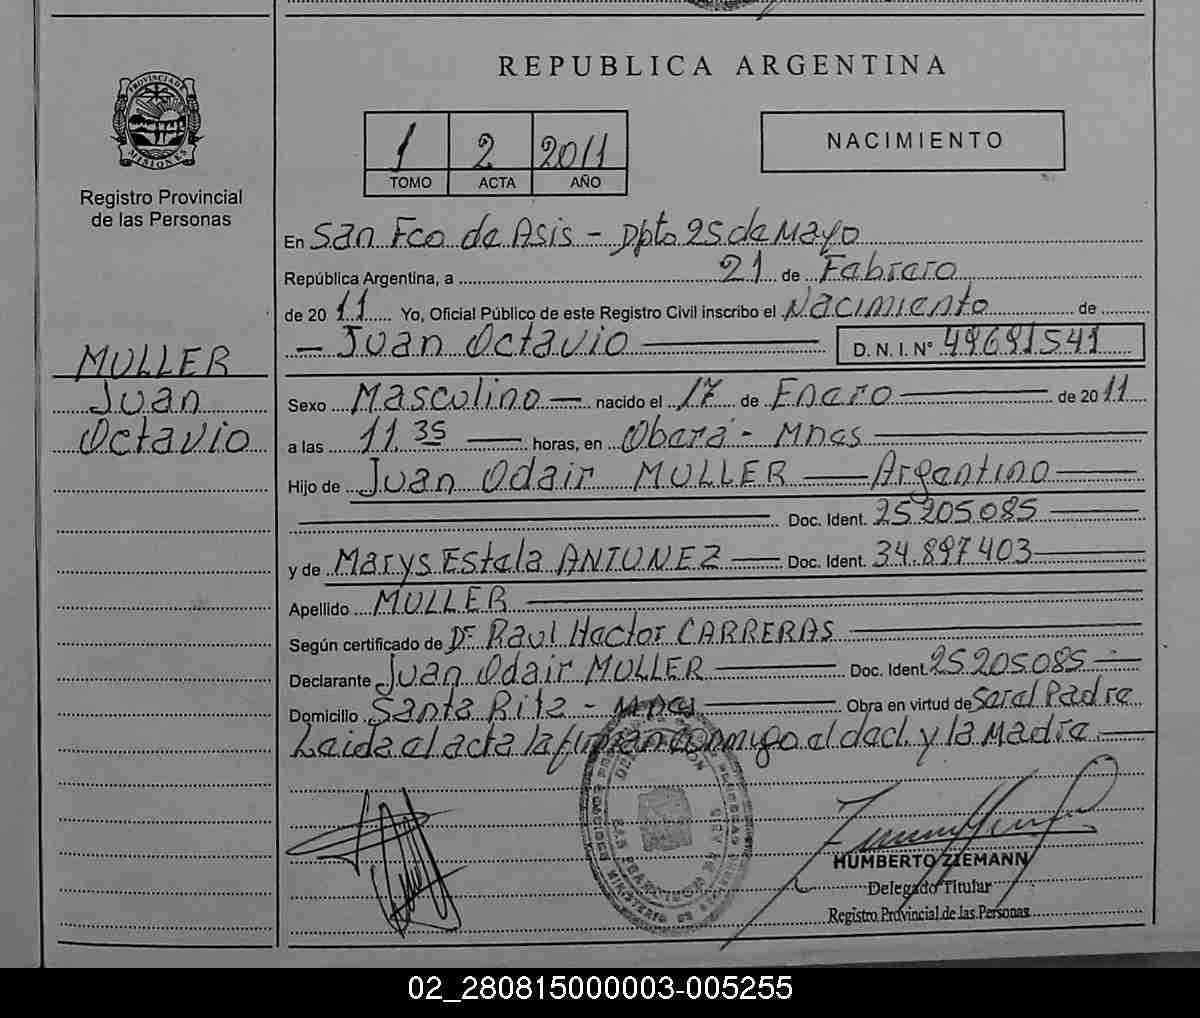 REPUBLICA ARGENTINA
PROVINCIA DE MISIONES
Registro Provincial
de las Personas
1 2 2011
TOMO ACTA AÑO
NACIMIENTO
En San Fco de Asis - Dpto 25 de Mayo
República Argentina, a 21 de Febrero
de 2011 Yo, Oficial Público de este Registro Civil inscribo el Nacimiento de
- Juan Octavio D.N.I. Nº 49691541
MULLER
Juan
Octavio
Sexo Masculino - nacido el 17 de Enero de 2011
a las 11.35 horas, en Obera - Mnes
Hijo de Juan Odair MULLER Argentino
Doc. Ident. 25205085
y de Marys Estela ANTUNEZ Doc. Ident. 34.897.403
Apellido MULLER
Según certificado de Dr Raul Hector CARRERAS
Declarante Juan Odair MULLER Doc. Ident. 25205085
Domicilio Santa Rita - Mnes Obra en virtud de Ser el Padre
Leida el acta la firman conmigo el decl. y la Madre
HUMBERTO ZIEMANN
Delegado Titular
Registro Provincial de las Personas
02_280815000003-005255